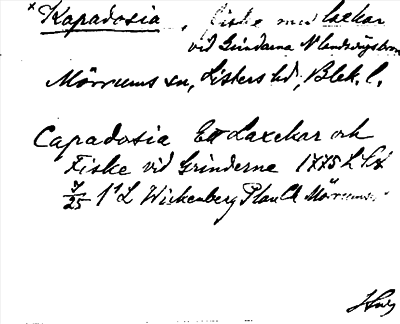 × Kapadosia, fiske med laxkar
vid Grindarna
Mörrums sn, Listers hd, Blek. l.
Capadosia Ett Laxekar och
Fiske vid Grinderne 1775
7/25 Wickenberg Plan Mörrums